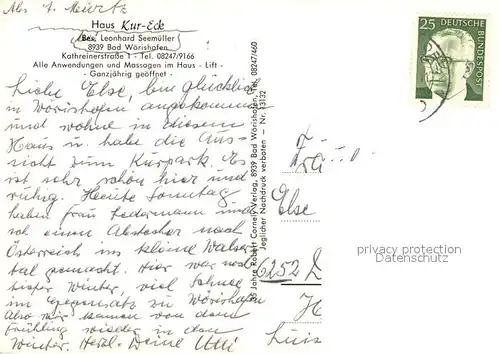 Abs. A. Müntz
Haus Kur-Eck
Bes. Leonhard Seemüller
8939 Bad Wörishofen
Kathreinerstraße 1 - Tel. 08247/9166
Alle Anwendungen und Massagen im Haus - Lift -
- Ganzjährig geöffnet -
Liebe Else, bin glücklich
in Wörishofen angekommen
und wohne in diesem
Haus u. habe die Aus-
sicht zum Kurpark. Es
ist sehr schön hier und
ruhig. Heute Sonntag
haben Frau Ledermann und
ich einen Abstecher nach
Österreich ins kleine Walser-
tal gemacht. Hier war noch
tiefer Winter, viel Schnee
im Gegensatz zu Wörishofen
Also wir kamen von dem
Frühling wieder in den
Winter. Herzl. Deine Utti
25 Jahre Robert Cornely Verlag, 8939 Bad Wörishofen, Tel. 08247/460
Jeglicher Nachdruck verboten - Nr. 13132
25
DEUTSCHE
BUNDESPOST
Frau
Else
6252 D
H
Luis
privacy protection
Datenschutz